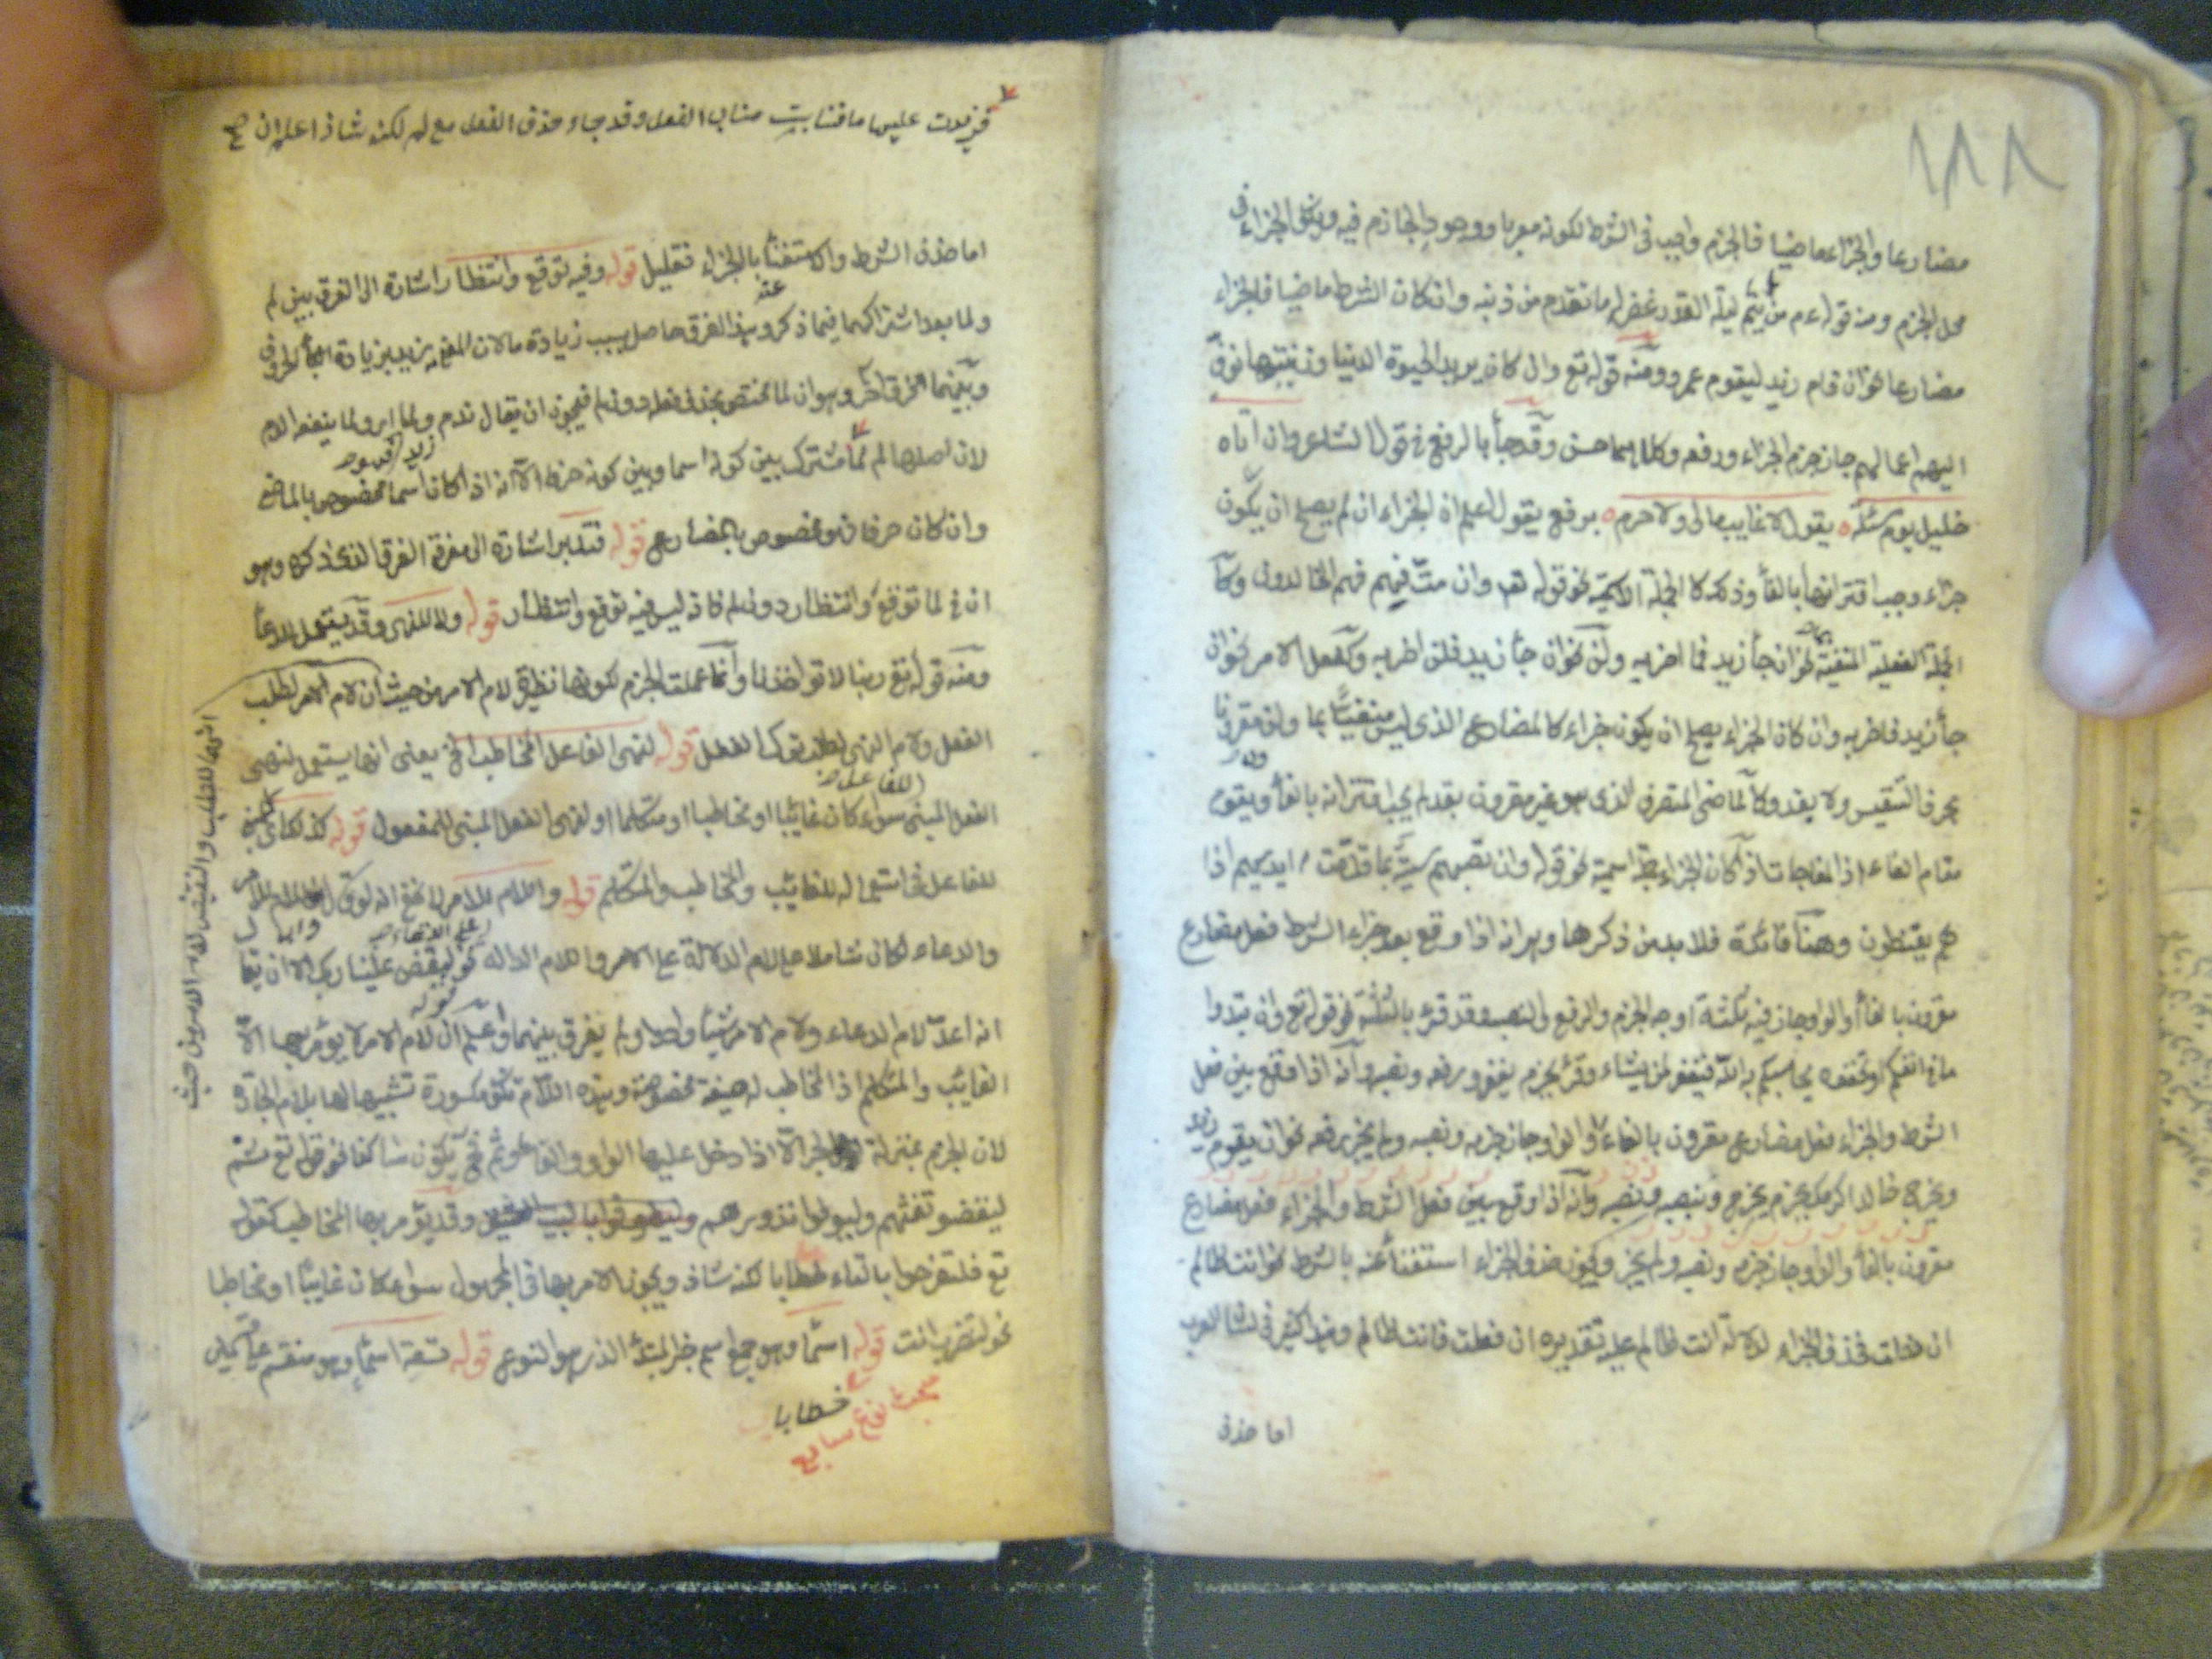 ١٨٨
مضارعا والجزاء ماضيا فالجزم واجب فى الشرط لكونه معربا ووجود الجازم فيه ويكون الجزاء فى
محل الجزم ومنه قوله عم من يقم ليلة القدر غفر له ما تقدم من ذنبه وان كان الشرط ماضيا فالجزاء
مضارعا نحو ان قام زيد ليقوم عمرو ومنه قوله تع وان كان يريد الحيوة الدنيا وزينتها نوف
اليهم اعمالهم جاز جزم الجزاء ورفعه وكلاهما حسن وقد جاء بالرفع فى قول الشاعر وان اتاه
خليل يوم مسئلة يقول لا غايب مالى ولا حرم برفع يقول اعلم ان الجزاء ان لم يصلح ان يكون
جزاء وجب اقترانها بالفاء وذلك كالجملة الاسمية نحو قوله تعه وان مت فهم الخالدون وكا
الجملة الفعلية المنفية بما نحو ان جاء زيد فما اضربه ولن نحو ان جاء زيد فلن اضربه وكفعل الامر نحو ان
جاء زيد فاضربه وان كان الجزاء يصلح ان يكون جزاء كالمضارع الذى ليس منفيا بما ولن مقرونا
بحرف التنفيس ولا بقد وكالماضى المتصرف الذى هو غير مقرون بقد لم يجب اقترانه بالفاء ويقوم
مقام الفاء اذا المفاجات اذ اكان الجزاء جملة اسمية نحو قوله وان تصبهم سيئة بما قدمت ايديهم اذا
هم يقنطون وهنا فائدة فلا بد من ذكرها وهو انه اذا وقع بعد جزاء الشرط فعل مضارع
مقرون بالفاء او الواو جاز فيه ثلثة اوجه الجزم والرفع والنصب وقد قرئ بالثلثة نحو قوله تع وان تبدوا
ما فى انفسكم او تخفوه يحاسبكم به الله فيغفر لمن يشاء وقرئ بجزم يغفر ورفعه ونصبه وانه اذا وقع بين فعل
الشرط والجزاء فعل مضارع مقرون بالفاء او الواو جاز جزمه ونصبه ولم يجز رفعه نحو ان يقوم زيد
ويخرج خالد اكرمك بجزم يخرج ونصبه وانه اذا وقع بين فعل الشرط والجزاء فعل مضارع
مقرون بالفاء والواو جاز جزمه ونصبه ولم يجز ويكون حذف الجزاء استغناء عنه بالشرط نحو انت ظالم
ان فعلت فحذف الجزاء لدلالة انت ظالم عليه تقديره ان فعلت فانت ظالم وهذا كثير فى لسان العرب
اما حذف
فزيدت عليها ما فنابت مناب الفعل وقد جاء حذف الفعل مع لم لكنه شاذ اعلم ان صح
اما حذف الشرط والاستغناء بالجزاء فقليل قوله وفيه توقع وانتظار اشارة الى الفرق بين لم
ولما بعد اشتراكهما فيما ذكر وهذا الفرق حاصل بسبب زيادة ما لان المعنى يزيد بزيادة البناء الحرفى
وبينهما الفرق آخر وهو ان لما مختص بحذف فعله دون لم فيجوز ان يقال ندم ولما اى ولما ينفعه الندم
لان اصلها لم لما مشترك بين كونه اسما وبين كونه حرفا الا انه اذا كان اسما مخصوص بالماضى
وان كان حرفا فهو مخصوص بالمضارع قوله فتدبر اشارة الى معرفة الفرق الذى ذكره وهو
ان فى لما توقع وانتظار دون لم فانه ليس فيه توقع وانتظار قوله ولا للنهى وقد يستعمل للدعاء
ومنه قوله تع ربنا لا تؤاخذنا وانما عملت الجزم لكونها نظيرة لام الامر من حيث ان لام الامر لطلب
الفعل ولام النهى لطلب ترك الفعل قوله لنهى الفاعل المخاطب الخ يعنى انها يستعمل لنهى
الفعل المبنى للفاعل سواء كان غائبا او مخاطبا او متكلما او لنهى الفعل المبنى للمفعول قوله كذلك
للفاعل فى استعماله للغائب والمخاطب والمتكلم قوله واللام للامر
والدعاء لكان شاملا على لام الدلالة على الامر واللام الداله على الدعاء نحو ليقض علينا ربك الا ان يقا
انه اعد لام الدعاء ولام الامر شيئا واحدا ولم يفرق بينهما واعلم ان لام الامر لا يؤمر بها الا
الغائب والمتكلم اذ المخاطب له صيغة مخصوصة وهذه اللام تكون مكسورة تشبيها لها بلام الجارة
لان الجزم بمنزلة الجر الا اذا دخل عليها الواو والفاء وثم فح يكون ساكنا نحو قوله تع ثم
ليقضوا تفثهم وليوفوا نذورهم وليطوفوا بالبيت العتيق وقد يؤمر بها المخاطب كقوله
تع فلتفرحوا بالتاء خطابا لكنه شاذ ويجوز الامر بها فى المجهول سواء كان غايبا او مخاطبا
نحو لتضرب انت قوله اسماء وهو جمع اسم خبر المبتدأ الذى هو النوع قوله تسعة اسماء وهو منقسم على
خطابا
مبحث نوع سابع